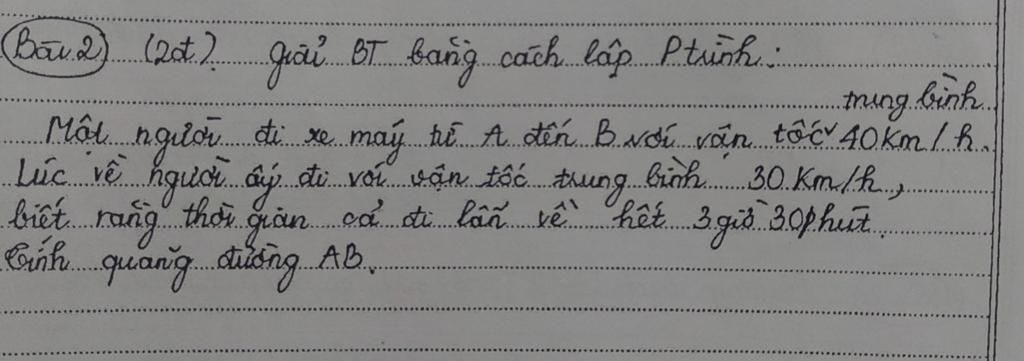 Bài 2 (2đ). giải BT bằng cách lập Ptrình:
trung bình
Một người đi xe máy từ A đến B với vận tốc ˅ 40 Km/h.
Lúc về người ấy đi với vận tốc trung bình 30 Km/h,
biết rằng thời gian cả đi lẫn về hết 3 giờ 30 phút.
Tính quãng đường AB.